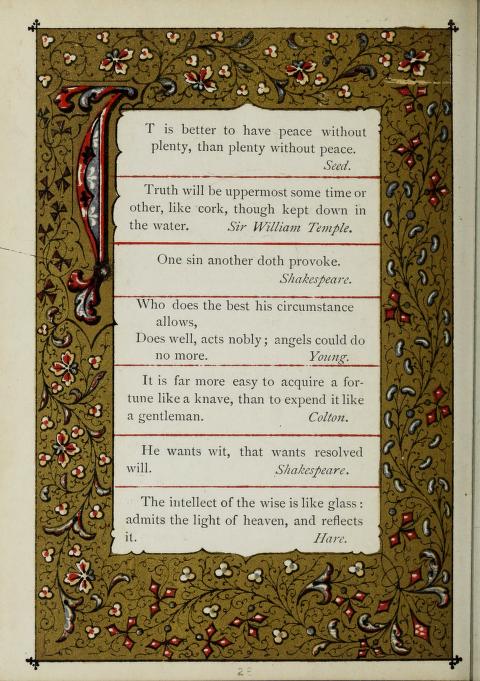 IT is better to have peace without
plenty, than plenty without peace.
Seed.
Truth will be uppermost some time or
other, like cork, though kept down in
the water. Sir William Temple.
One sin another doth provoke.
Shakespeare.
Who does the best his circumstance
allows,
Does well, acts nobly; angels could do
no more. Young.
It is far more easy to acquire a for-
tune like a knave, than to expend it like
a gentleman. Colton.
He wants wit, that wants resolved
will. Shakespeare.
The intellect of the wise is like glass:
admits the light of heaven, and reflects
it. Hare.